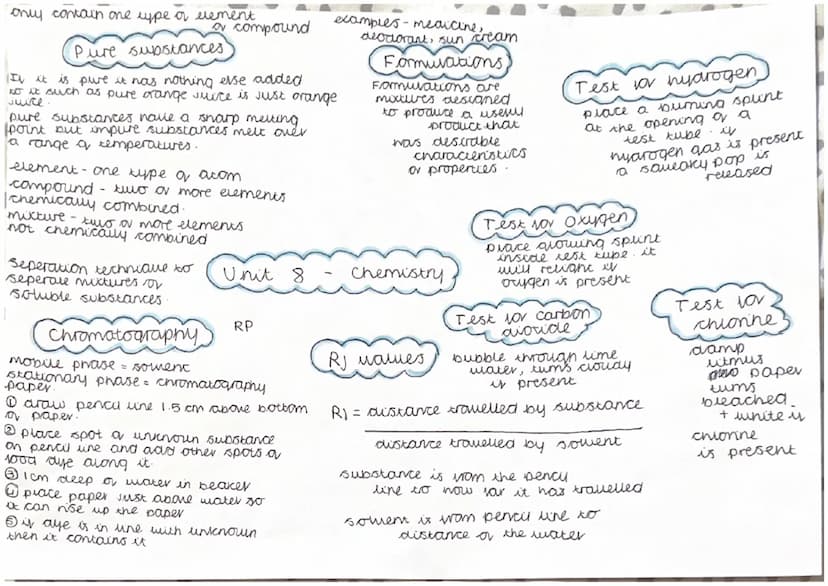 only contain one type of element
or compound
Pure substances
If it is pure it has nothing else added
to it such as pure orange juice is just orange
juice.
pure substances have a sharp melting
point but impure substances melt over
a range of temperatures.
element - one type of atom
compound - two or more elements
chemically combined.
mixture - two or more elements
not chemically combined
examples - medicine,
deodorant, sun cream
Formulations
Formulations are
mixtures designed
to produce a useful
product that
has desirable
characteristics
or properties.
Test for hydrogen
place a burning splint
at the opening of a
test tube. if
hydrogen gas is present
a squeaky pop is
released
Test for Oxygen
place glowing splint
inside test tube. it
will relight if
oxygen is present
Unit 8 - Chemistry
Seperation technique to
seperate mixtures of
soluble substances.
Chromatography
RP
mobile phase = solvent
stationary phase = chromatography
paper.
① draw pencil line 1.5 cm above bottom
of paper.
② place spot of unknown substance
on pencil line and add other spots of
food dye along it.
③ 1cm deep of water in beaker
④ place paper just above water so
it can rise up the paper
⑤ if dye is in line with unknown
then it contains it
Rf values
Rf = distance travelled by substance
distance travelled by solvent
substance is from the pencil
line to how far it has travelled
solvent is from pencil line to
distance of the water
Test for carbon
dioxide
bubble through lime
water, turns cloudy
if present
Test for
chlorine
damp
litmus
paper
turns
bleached
+ white if
chlorine
is present